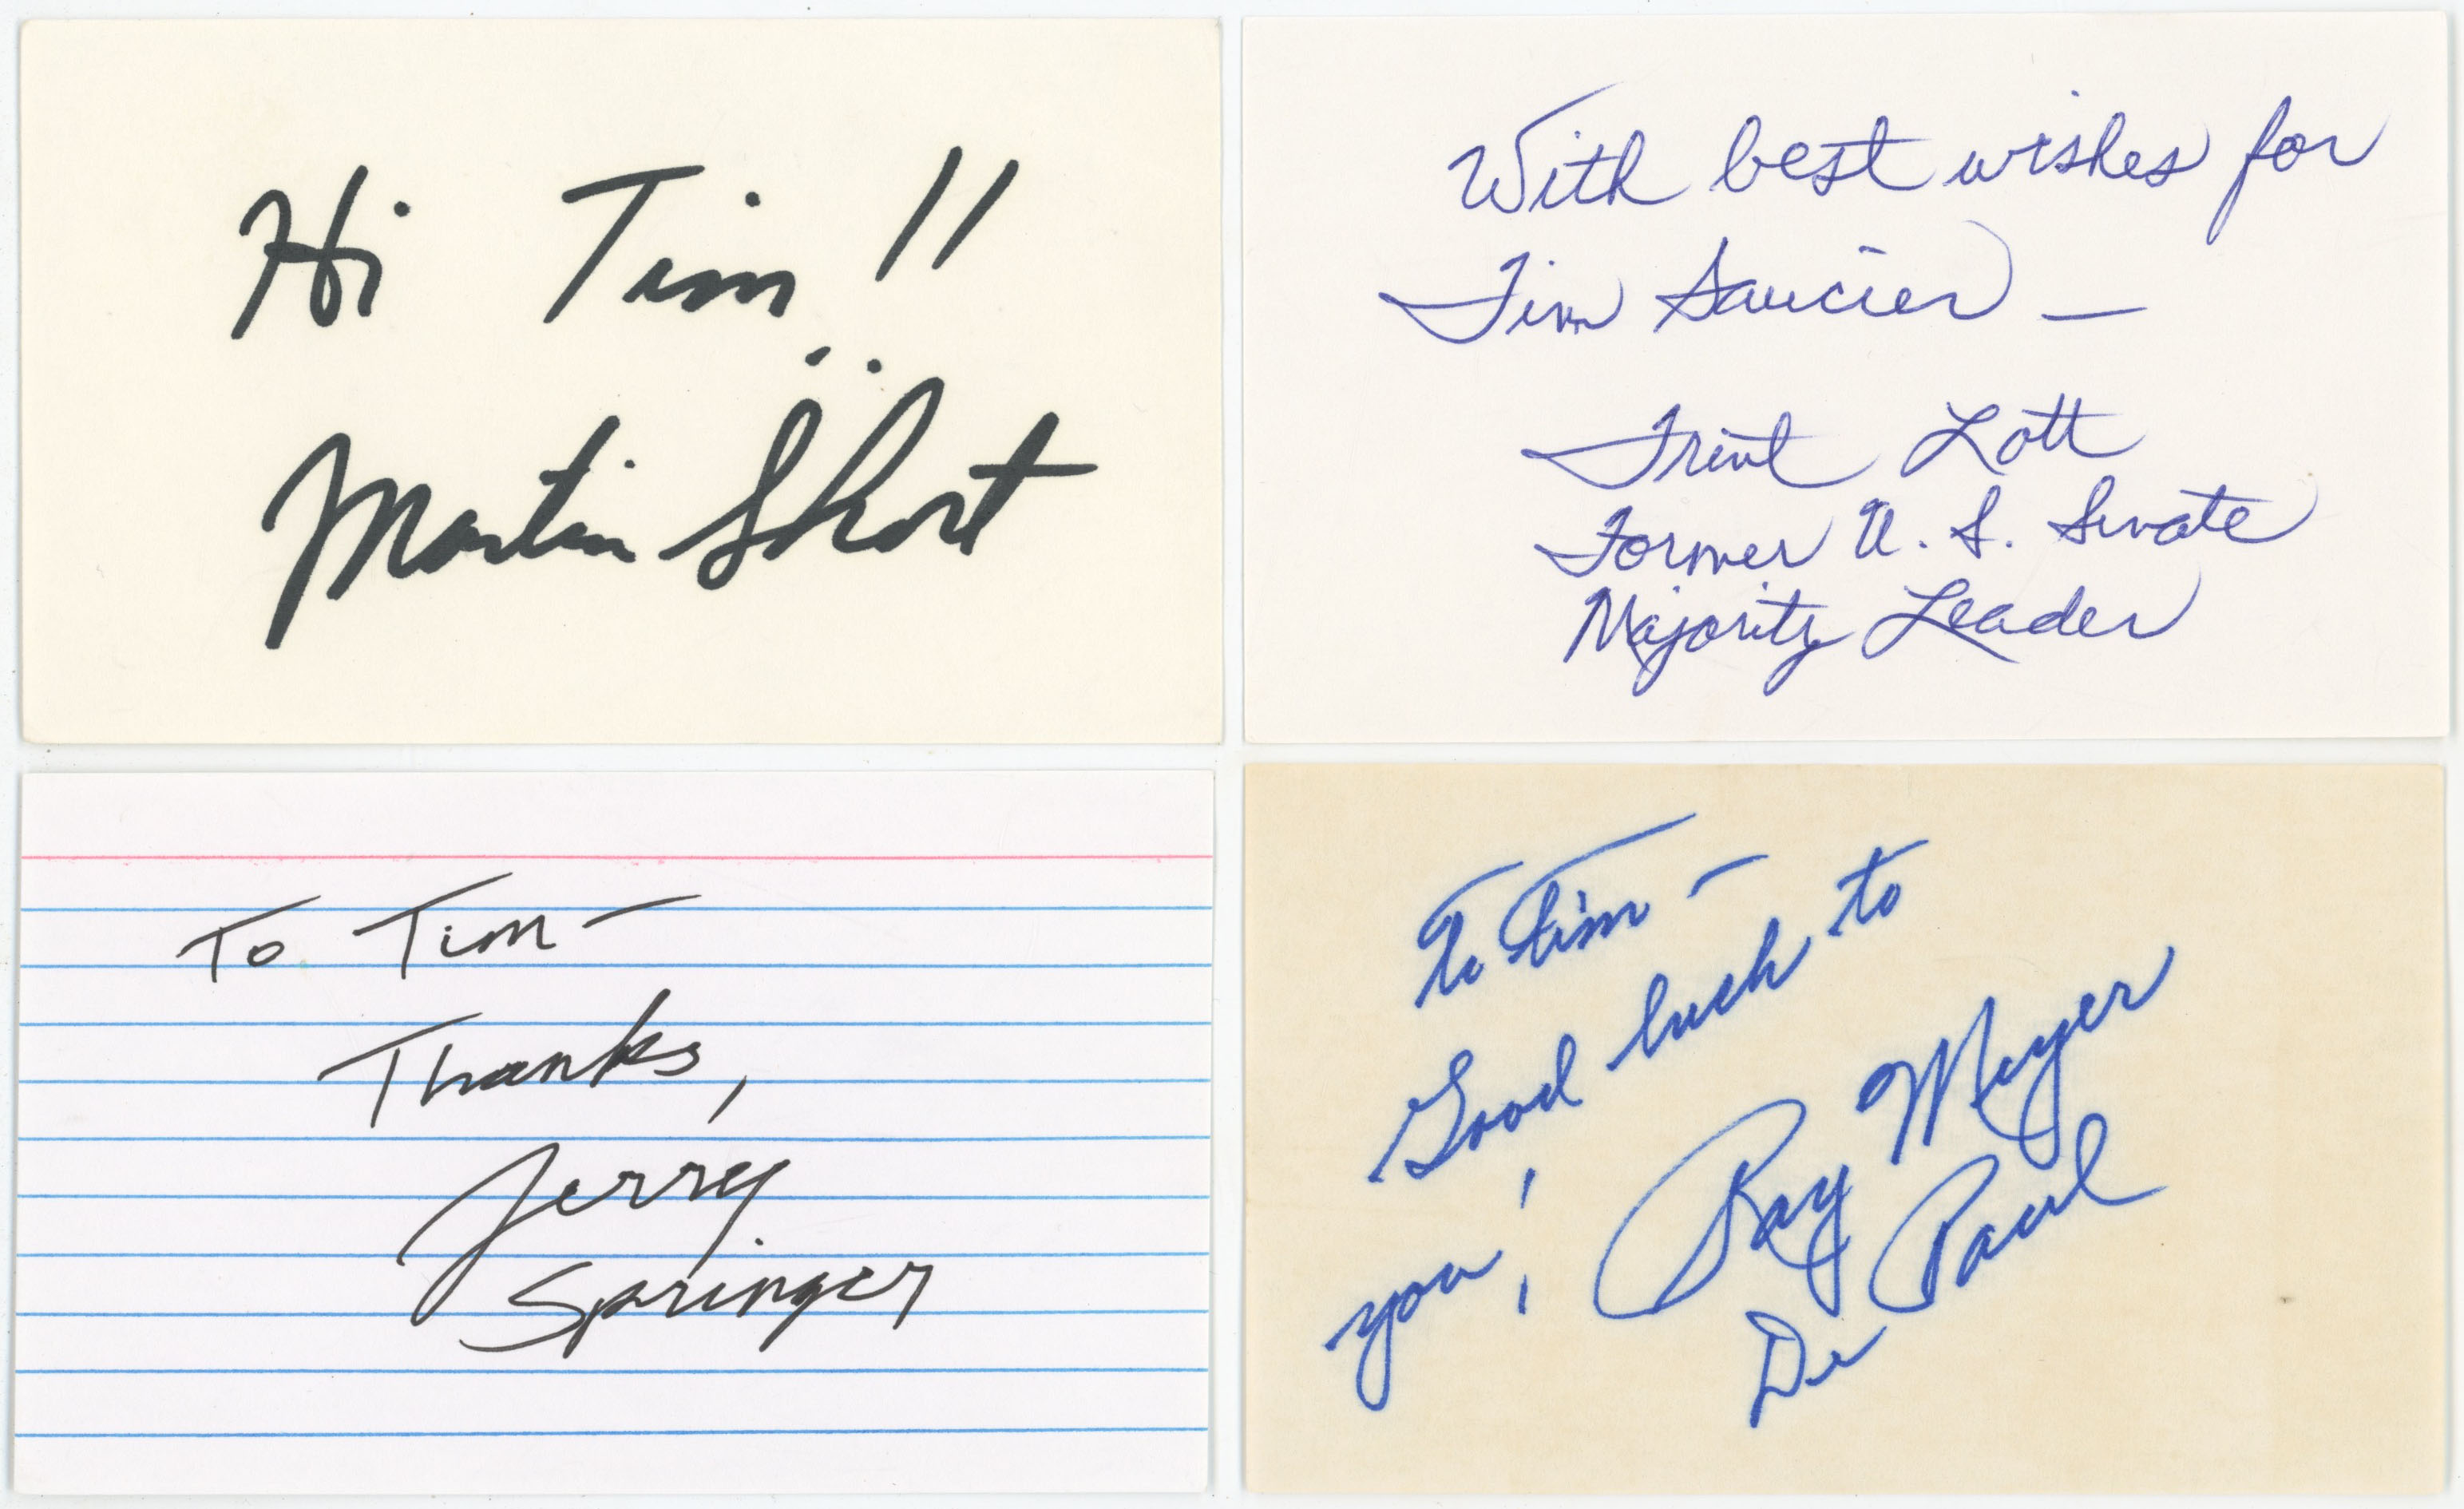 Hi Tim!!
Martin Short
With best wishes for
Tim Saucier —
Trent Lott
Former U. S. Senate
Majority Leader
To Tim —
Thanks,
Jerry
Springer
To Tim —
Good luck to
you!
Ray Meyer
De Paul